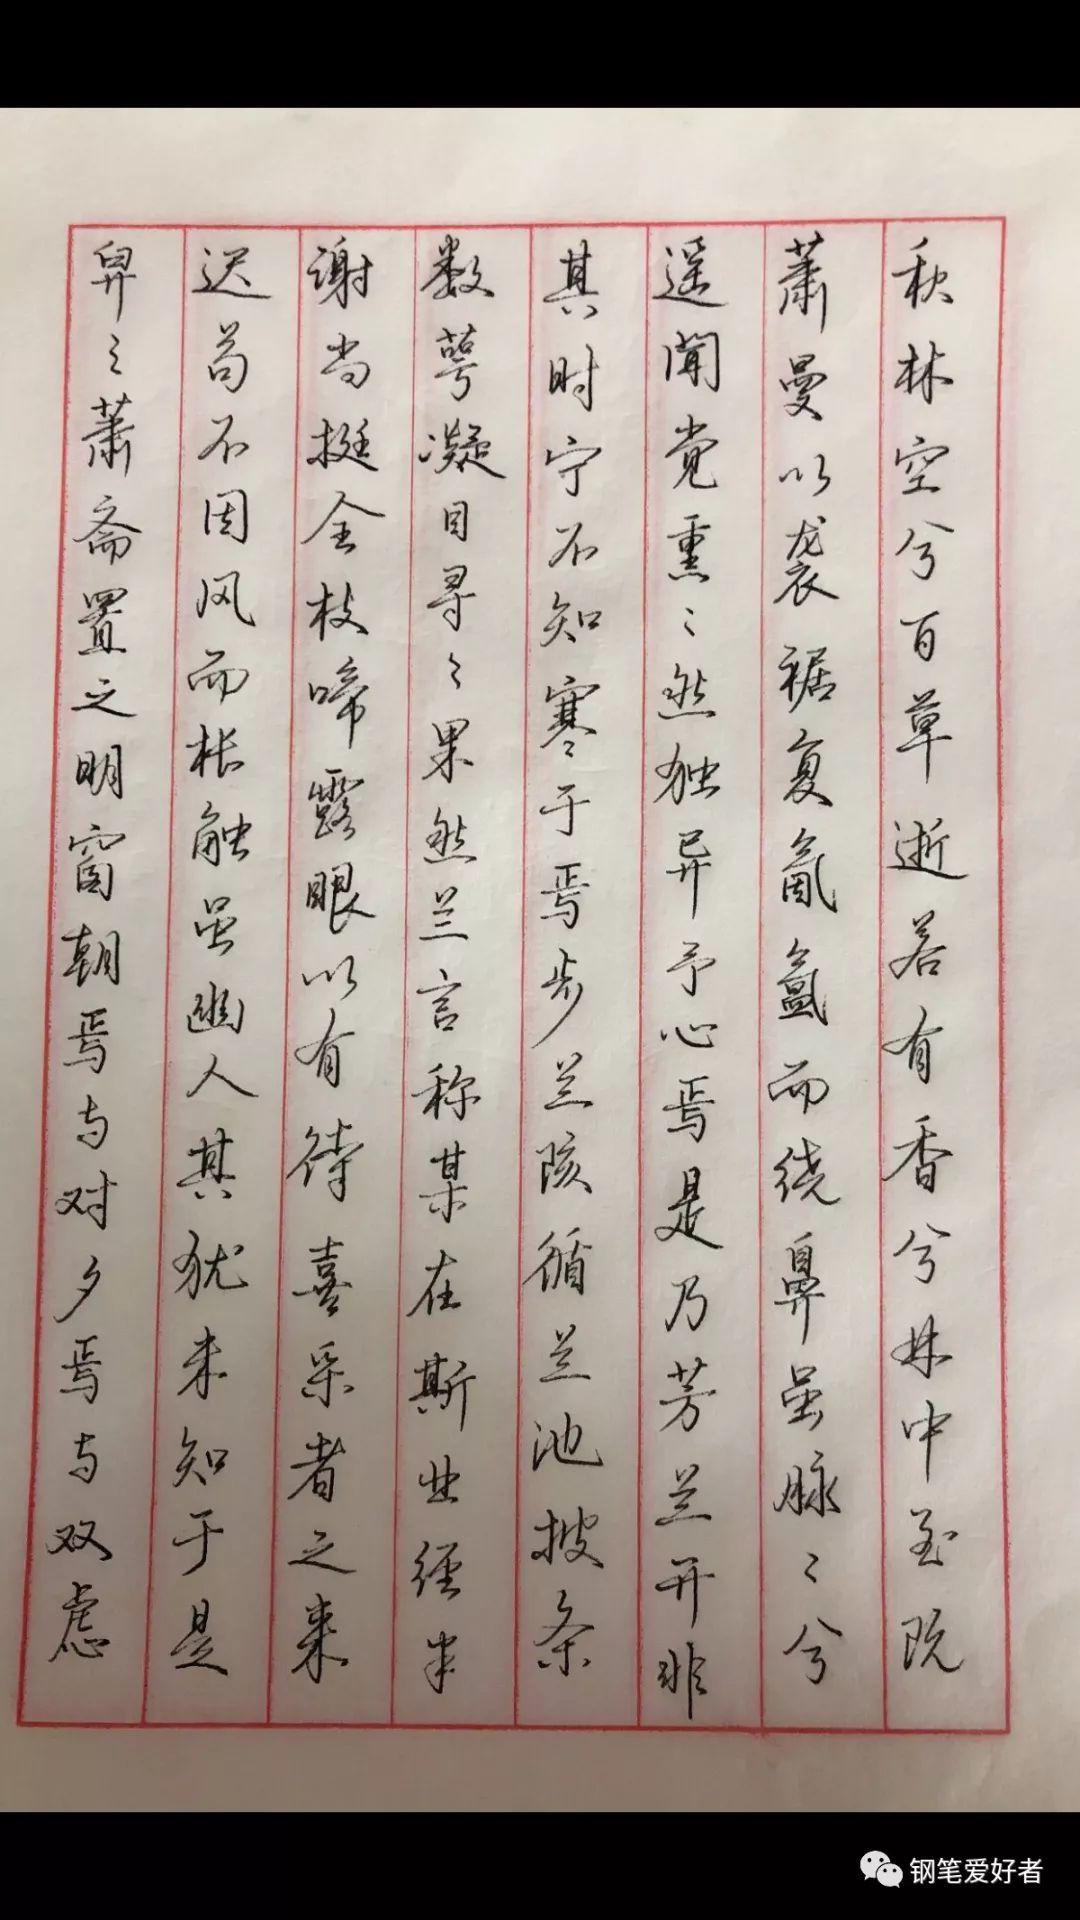 秋林空兮百草逝若有香兮林中至既
萧曼以袭裾复氤氲而绕鼻虽脉〻兮
遥闻觉熏〻然独异予心焉是乃芳兰开非
其时宁不知寒于焉步兰陔循兰池披条
数萼凝目寻〻果然兰言称某在斯业经半
谢尚挺全枝啼露眼以有待喜采者之来
迟苟不因风而枨触虽幽人其犹未知于是
舁〻萧斋置之明窗朝焉与对夕焉与双虑
钢笔爱好者